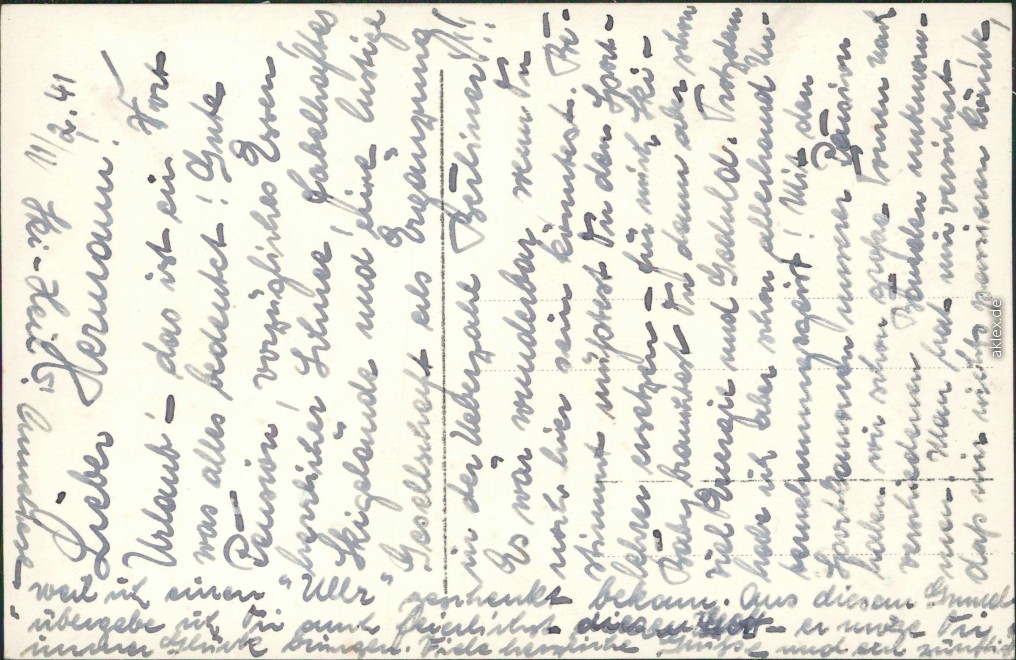 11/2.41
Lieber Hermann!
Urlaub – das ist ein Wort
was alles bedeutet! Gute
Pension, vorzügliches Essen
herrlicher Schnee, fabelhaftes
Skigelände und eine lustige
Gesellschaft als Ergänzung
in der Ueberzahl Berliner!!!
Es wär wunderbar wenn Du
noch hier sein könntest. Be-
stimmt müßtest Du den Sport-
lehrer ersetzen – für mich Ski-
Baby brauchtest Du dann aber schon
viel Energie und Geduld. Trotzdem
habe ich aber schon allerhand Un-
ternehmungsgeist! Mit den
Sportkanonen unserer Pension
haben wir schon große Touren nach
verschiedenen Bauden unternom-
men. Man hat mir versichert
daß mir nichts passieren könnte,
weil ich einen "Ullr" geschenkt bekam. Aus diesem Grunde
übergebe ich Dir auch feierlichst er möge Dir
immer Glück bringen. Viele herzliche Grüße und ein zünftig
Ski-Heil! Anneliese
aklex.de